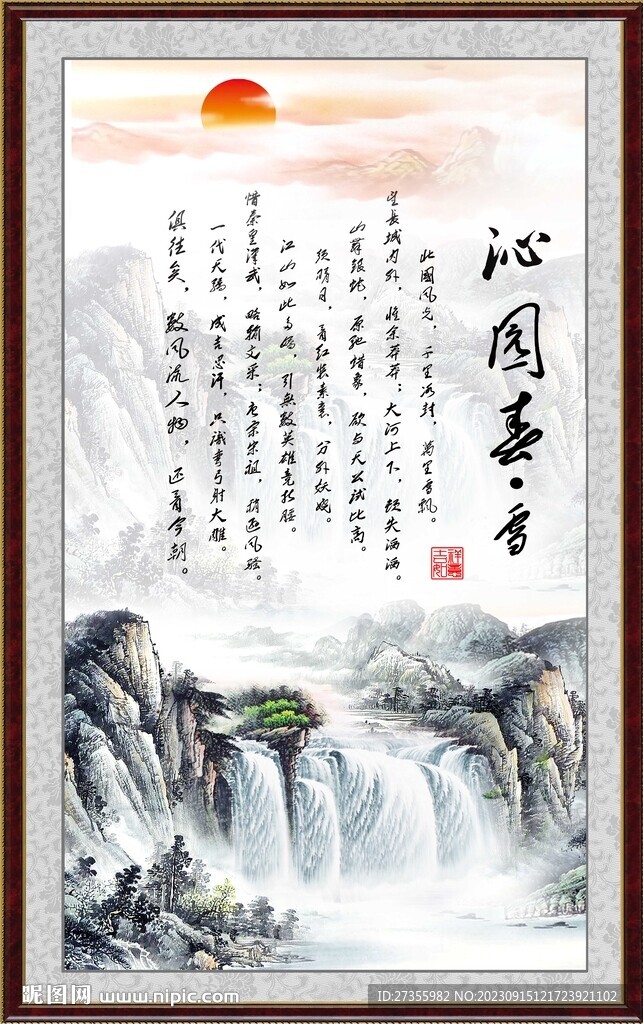 沁园春·雪
北國风光，千里冰封，萬里雪飘。
望長城内外，惟余莽莽；大河上下，顿失滔滔。
山舞银蛇，原驰蜡象，欲与天公试比高。
须晴日，看红装素裹，分外妖娆。
江山如此多娇，引無数英雄竞折腰。
惜秦皇漢武，略输文采；唐宗宋祖，稍逊风骚。
一代天骄，成吉思汗，只識弯弓射大雕。
俱往矣，数风流人物，还看今朝。
吉祥如意
昵图网 www.nipic.com
ID:27355982 NO:20230915121723921102